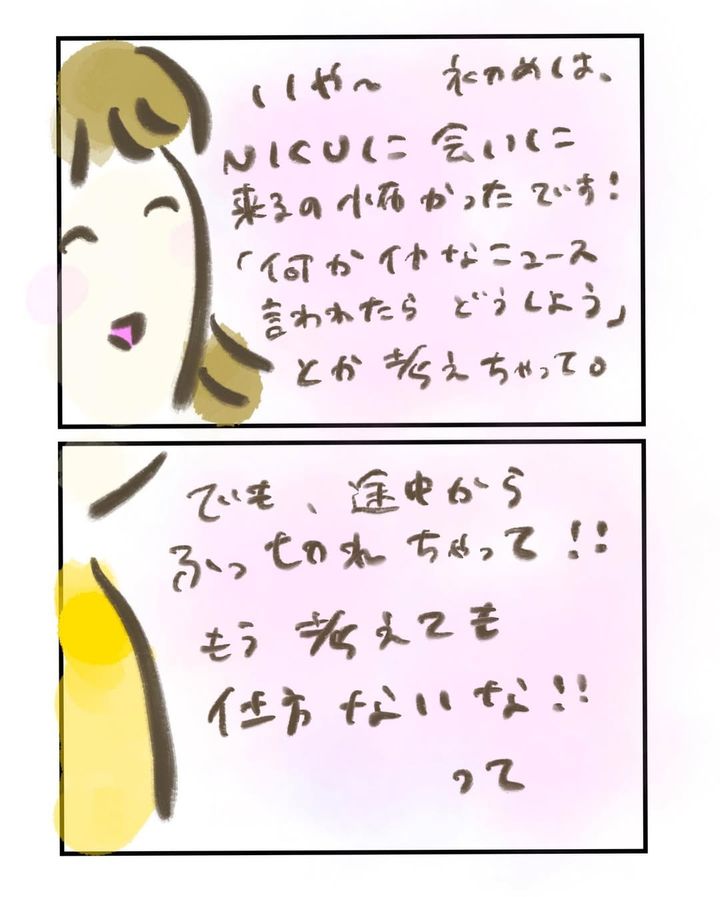 いや〜 初めは、
NICUに 会いに
来るの 怖かったです!
「何か イヤなニュース
言われたら どうしよう」
とか 考えちゃって。
でも、途中から
ふっ切れちゃって!!
もう考えても
仕方ないな!!
って